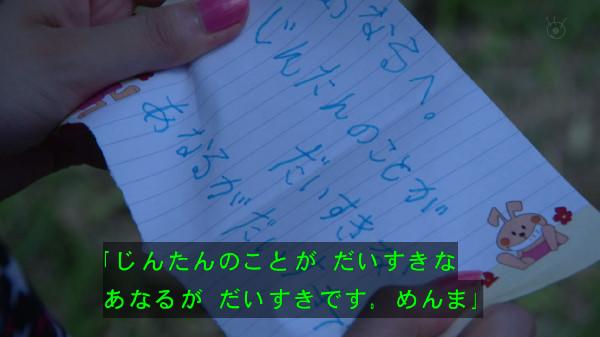 あなるへ。
じんたんのことが
だいすきな
あなるがだい
「じんたんのことが だいすきな
あなるが だいすきです。めんま」